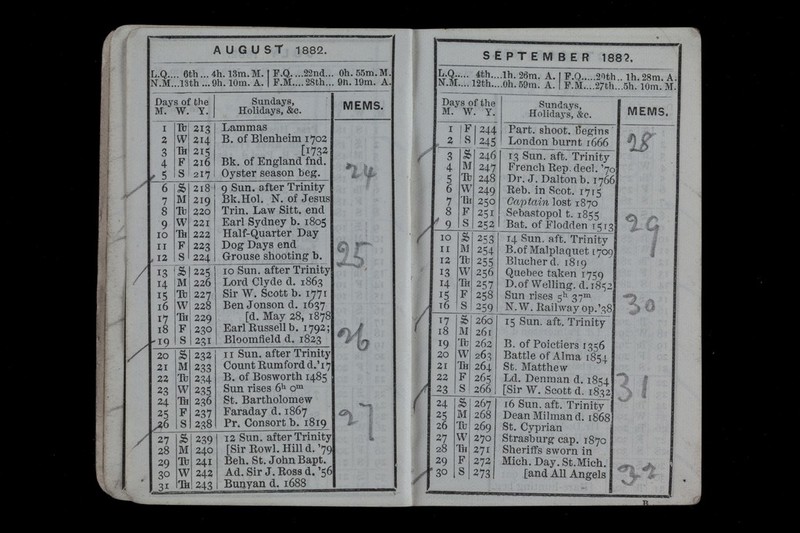 AUGUST 1882.
L.Q.... 6th... 4h. 13m. M. | F.Q....22nd... 0h. 55m. M.
N.M...13th...9h. 10m. A. | F.M....28th... 9h. 19m. A.
Days of the Sundays, MEMS.
M. W. Y. Holidays, &c.
1 Tu 213 Lammas
2 W 214 B. of Blenheim 1702
3 Th 215 [1732
4 F 216 Bk. of England fnd.
5 S 217 Oyster season beg. 24
6 S 218 9 Sun. after Trinity
7 M 219 Bk. Hol. N. of Jesus
8 Tu 220 Trin. Law Sitt. end
9 W 221 Earl Sydney b. 1805
10 Th 222 Half-Quarter Day
11 F 223 Dog Days end
12 S 224 Grouse shooting b. 25
13 S 225 10 Sun. after Trinity
14 M 226 Lord Clyde d. 1863
15 Tu 227 Sir W. Scott b. 1771
16 W 228 Ben Jonson d. 1637
17 Th 229 [d. May 28, 1878
18 F 230 Earl Russell b. 1792;
19 S 231 Bloomfield d. 1823 26
20 S 232 11 Sun. after Trinity
21 M 233 Count Rumford d.'17
22 Tu 234 B. of Bosworth 1485
23 W 235 Sun rises 6h 0m
24 Th 236 St. Bartholomew
25 F 237 Faraday d. 1867
26 S 238 Pr. Consort b. 1819 27
27 S 239 12 Sun. after Trinity
28 M 240 [Sir Rowl. Hill d. '79
29 Tu 241 Beh. St. John Bapt.
30 W 242 Ad. Sir J. Ross d. '56
31 Th 243 Bunyan d. 1688
SEPTEMBER 1882.
L.Q..... 4th....1h. 26m. A. | F.Q.....20th.. 1h. 28m. A.
N.M.... 12th....0h. 59m. A. | F.M....27th...5h. 10m. M.
Days of the Sundays, MEMS.
M. W. Y. Holidays, &c.
1 F 244 Part. shoot. begins
2 S 245 London burnt 1666 28
3 S 246 13 Sun. aft. Trinity
4 M 247 French Rep. decl. '70
5 Tu 248 Dr. J. Dalton b. 1766
6 W 249 Reb. in Scot. 1715
7 Th 250 Captain lost 1870
8 F 251 Sebastopol t. 1855
9 S 252 Bat. of Flodden 1513 29
10 S 253 14 Sun. aft. Trinity
11 M 254 B. of Malplaquet 1709
12 Tu 255 Blucher d. 1819
13 W 256 Quebec taken 1759
14 Th 257 D. of Welling. d. 1852
15 F 258 Sun rises 5h 37m
16 S 259 N.W. Railway op.'38 30
17 S 260 15 Sun. aft. Trinity
18 M 261
19 Tu 262 B. of Poictiers 1356
20 W 263 Battle of Alma 1854
21 Th 264 St. Matthew
22 F 265 Ld. Denman d. 1854
23 S 266 [Sir W. Scott d. 1832 31
24 S 267 16 Sun. aft. Trinity
25 M 268 Dean Milman d. 1868
26 Tu 269 St. Cyprian
27 W 270 Strasburg cap. 1870
28 Th 271 Sheriffs sworn in
29 F 272 Mich. Day. St. Mich.
30 S 273 [and All Angels 32
B